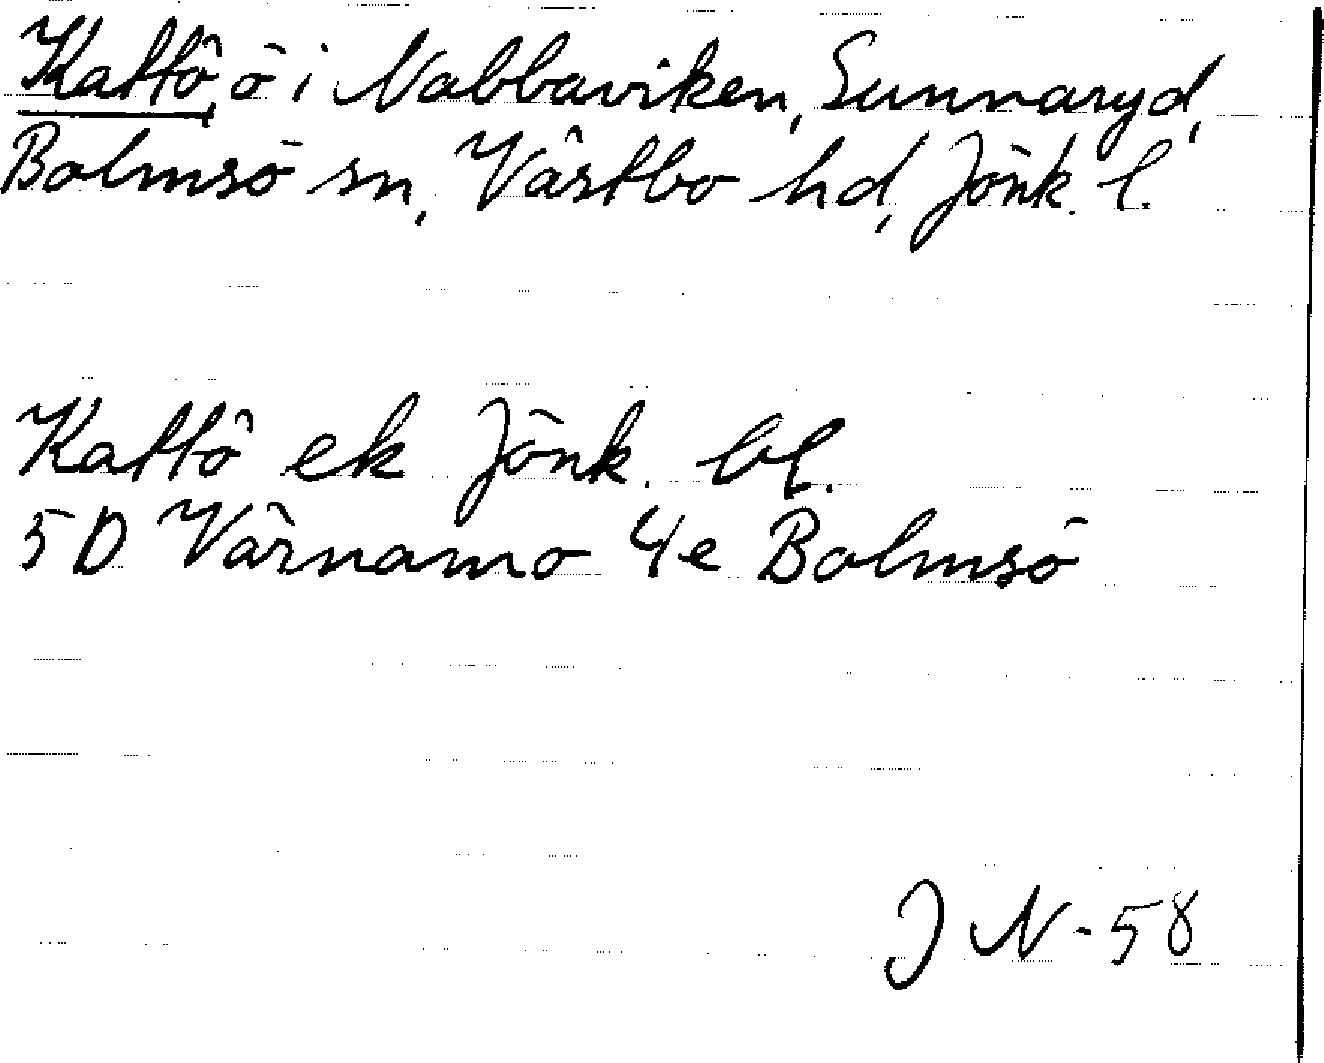 Kattö, ö i Nabbaviken, Sunnaryd,
Bolmsö sn, Västbo hd, Jönk. l.
Kattö ek Jönk. bl.
5D Värnamo 4e Bolmsö
J N-58